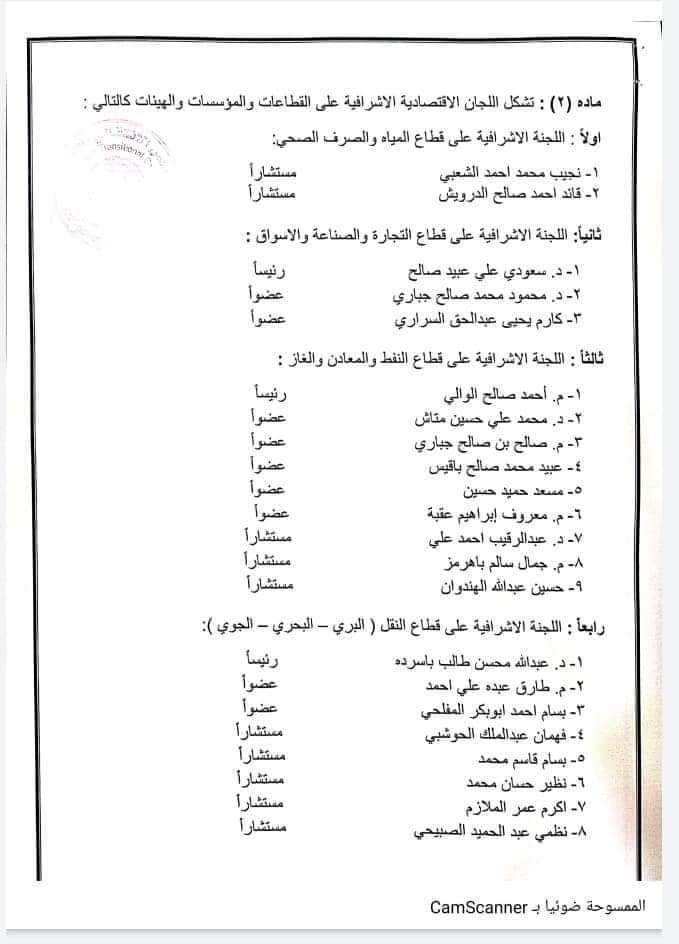 ماده (٢) : تشكل اللجان الاقتصادية الاشرافية على القطاعات والمؤسسات والهيئات كالتالي :
Transitional
اولاً : اللجنة الاشرافية على قطاع المياه والصرف الصحي:
١- نجيب محمد احمد الشعبي مستشاراً
٢- قائد احمد صالح الدرويش مستشاراً
ثانياً: اللجنة الاشرافية على قطاع التجارة والصناعة والاسواق :
١- د. سعودي علي عبيد صالح رئيساً
٢- د. محمود محمد صالح جباري عضواً
٣- كارم يحيى عبدالحق السراري عضواً
ثالثاً : اللجنة الاشرافية على قطاع النفط والمعادن والغاز :
١- م. أحمد صالح الوالي رئيساً
٢- د. محمد علي حسين متاش عضواً
٣- م. صالح بن صالح جباري عضواً
٤- عبيد محمد صالح باقيس عضواً
٥- مسعد حميد حسين عضواً
٦- م. معروف إبراهيم عقبة عضواً
٧- د. عبدالرقيب احمد علي مستشاراً
٨- م. جمال سالم باهرمز مستشاراً
٩- حسين عبدالله الهندوان مستشاراً
رابعاً : اللجنة الاشرافية على قطاع النقل ( البري – البحري – الجوي ):
١- د. عبدالله محسن طالب باسرده رئيساً
٢- م. طارق عبده علي احمد عضواً
٣- بسام احمد ابوبكر المفلحي عضواً
٤- فهمان عبدالملك الحوشبي مستشاراً
٥- بسام قاسم محمد مستشاراً
٦- نظير حسان محمد مستشاراً
٧- اكرم عمر الملازم مستشاراً
٨- نظمي عبد الحميد الصبيحي مستشاراً
الممسوحة ضوئيا بـ CamScanner